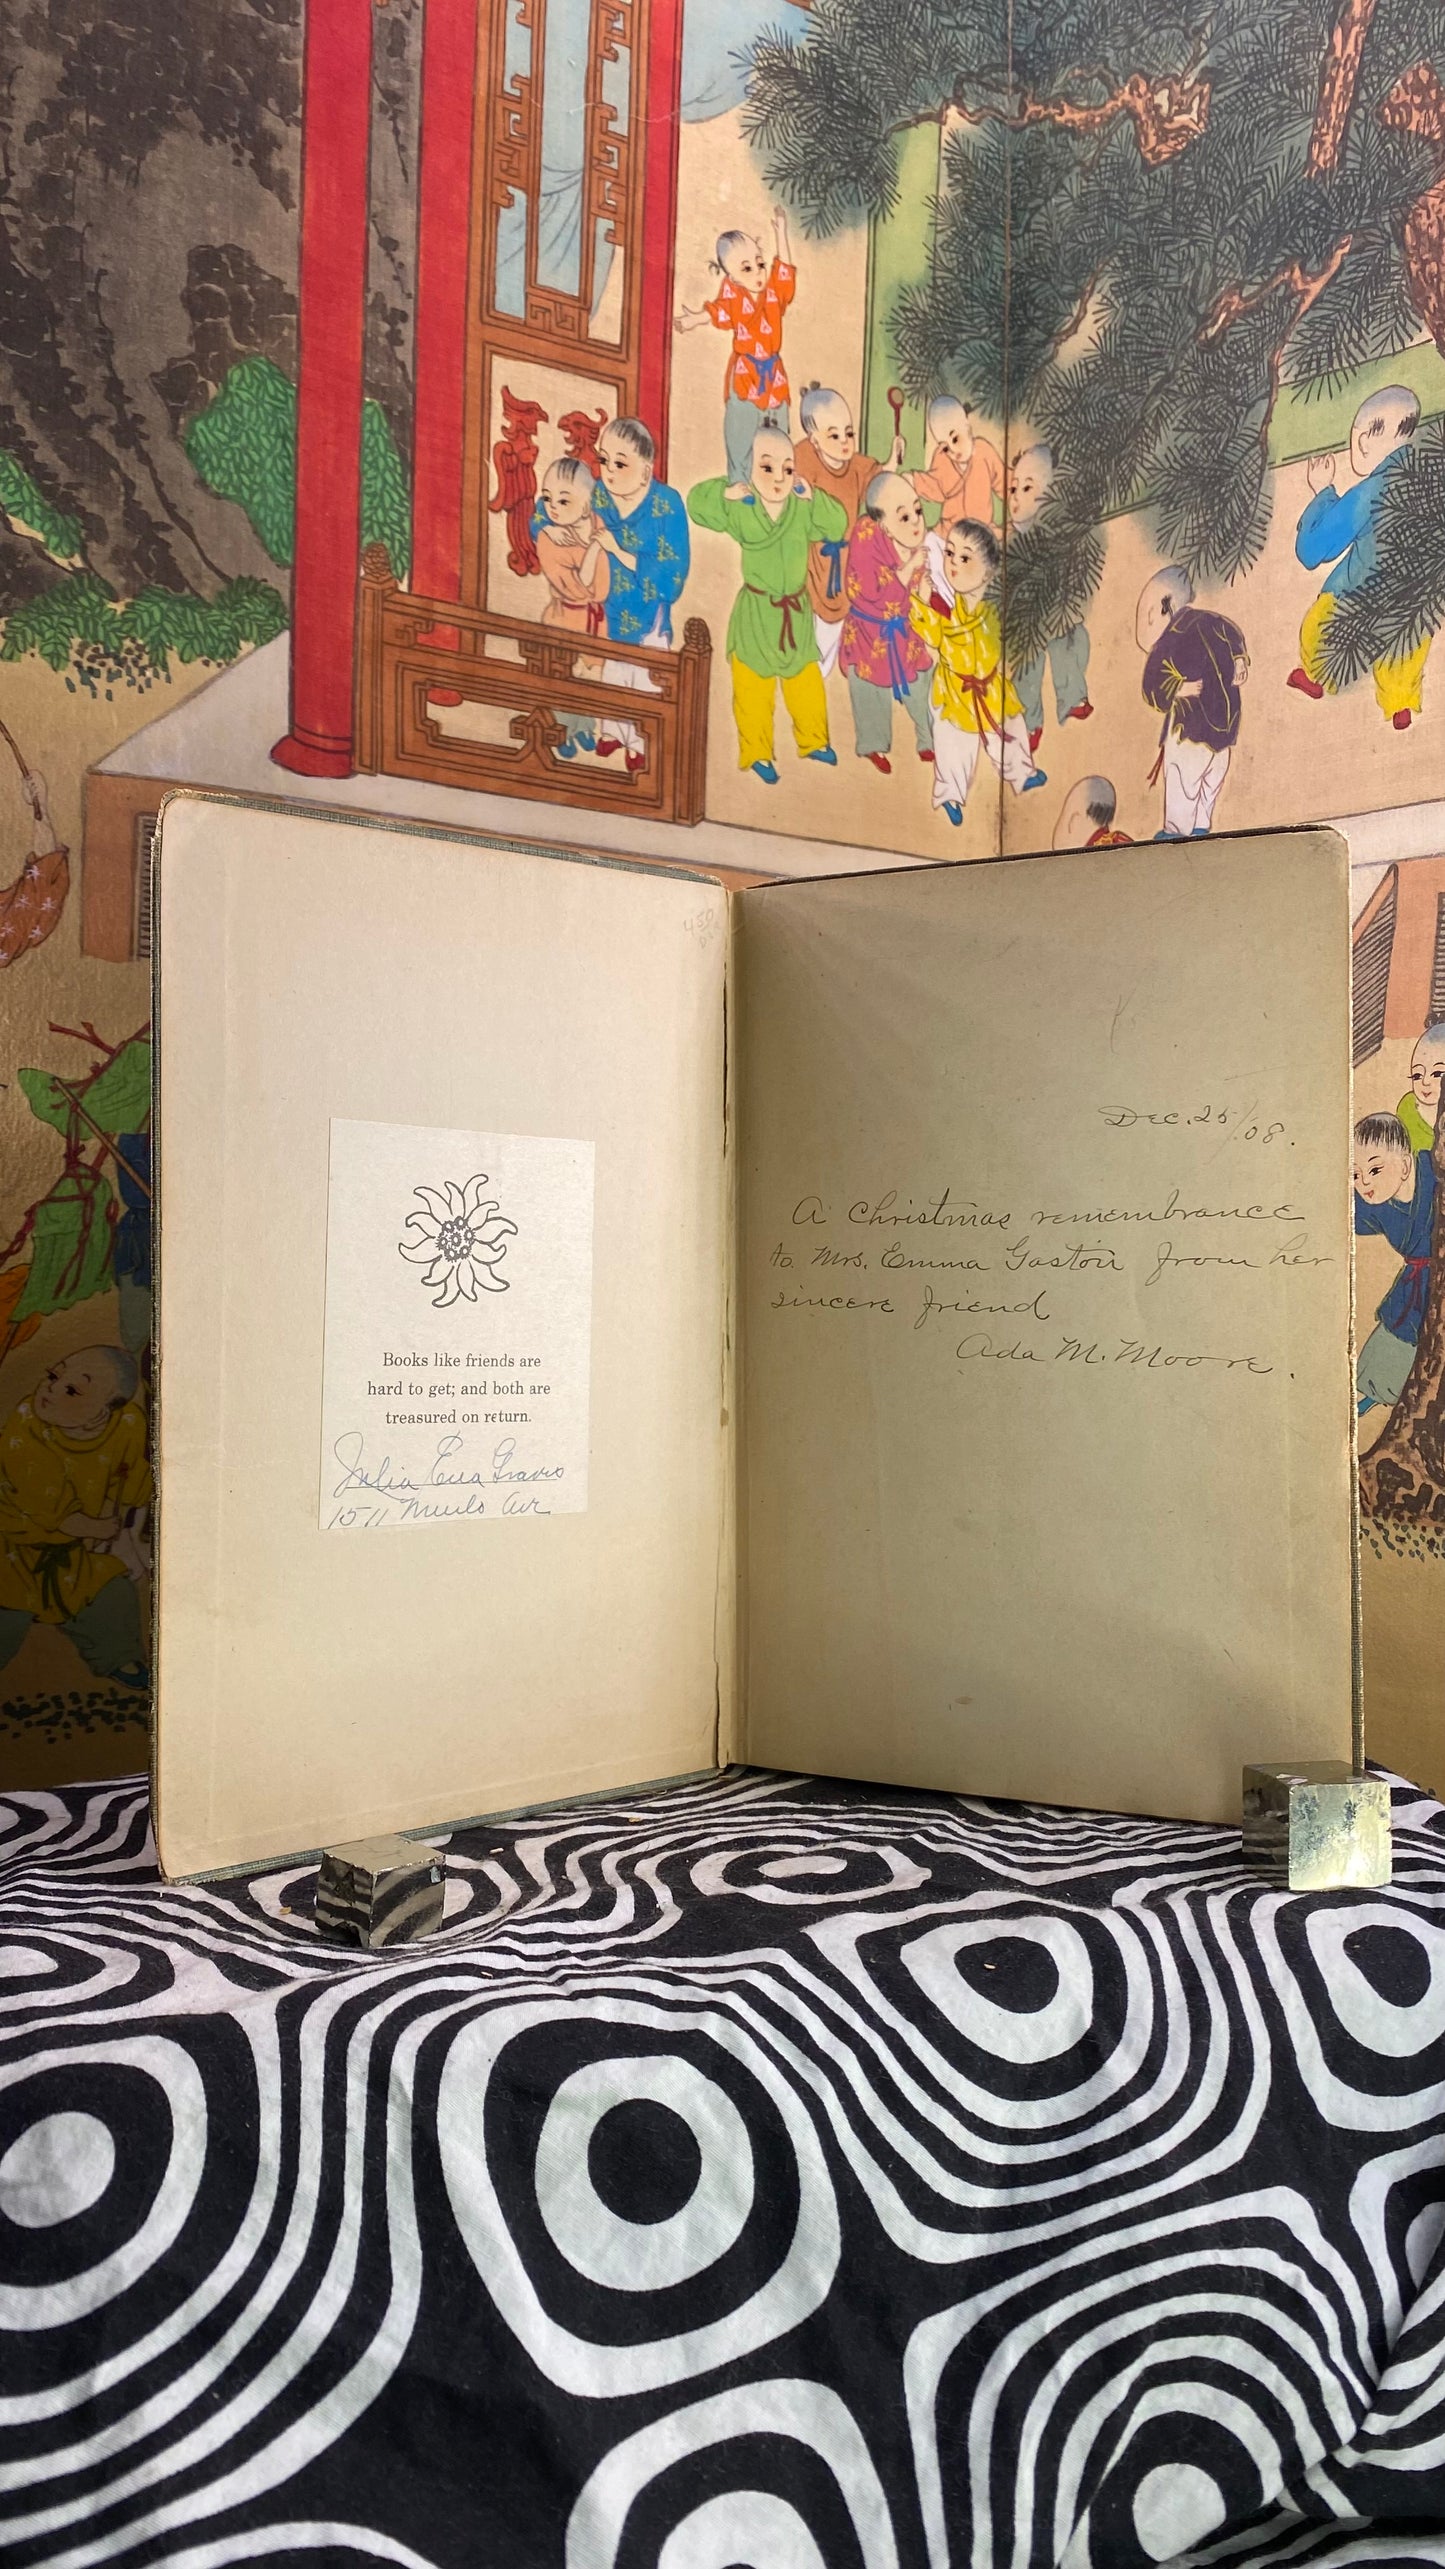 450
Books like friends are
hard to get; and both are
treasured on return.
Julia Eva Graves
1511 Ave
Dec. 25/08.
A Christmas remembrance
to Mrs. Emma Gaston from her
sincere friend
Ada M. Moore.